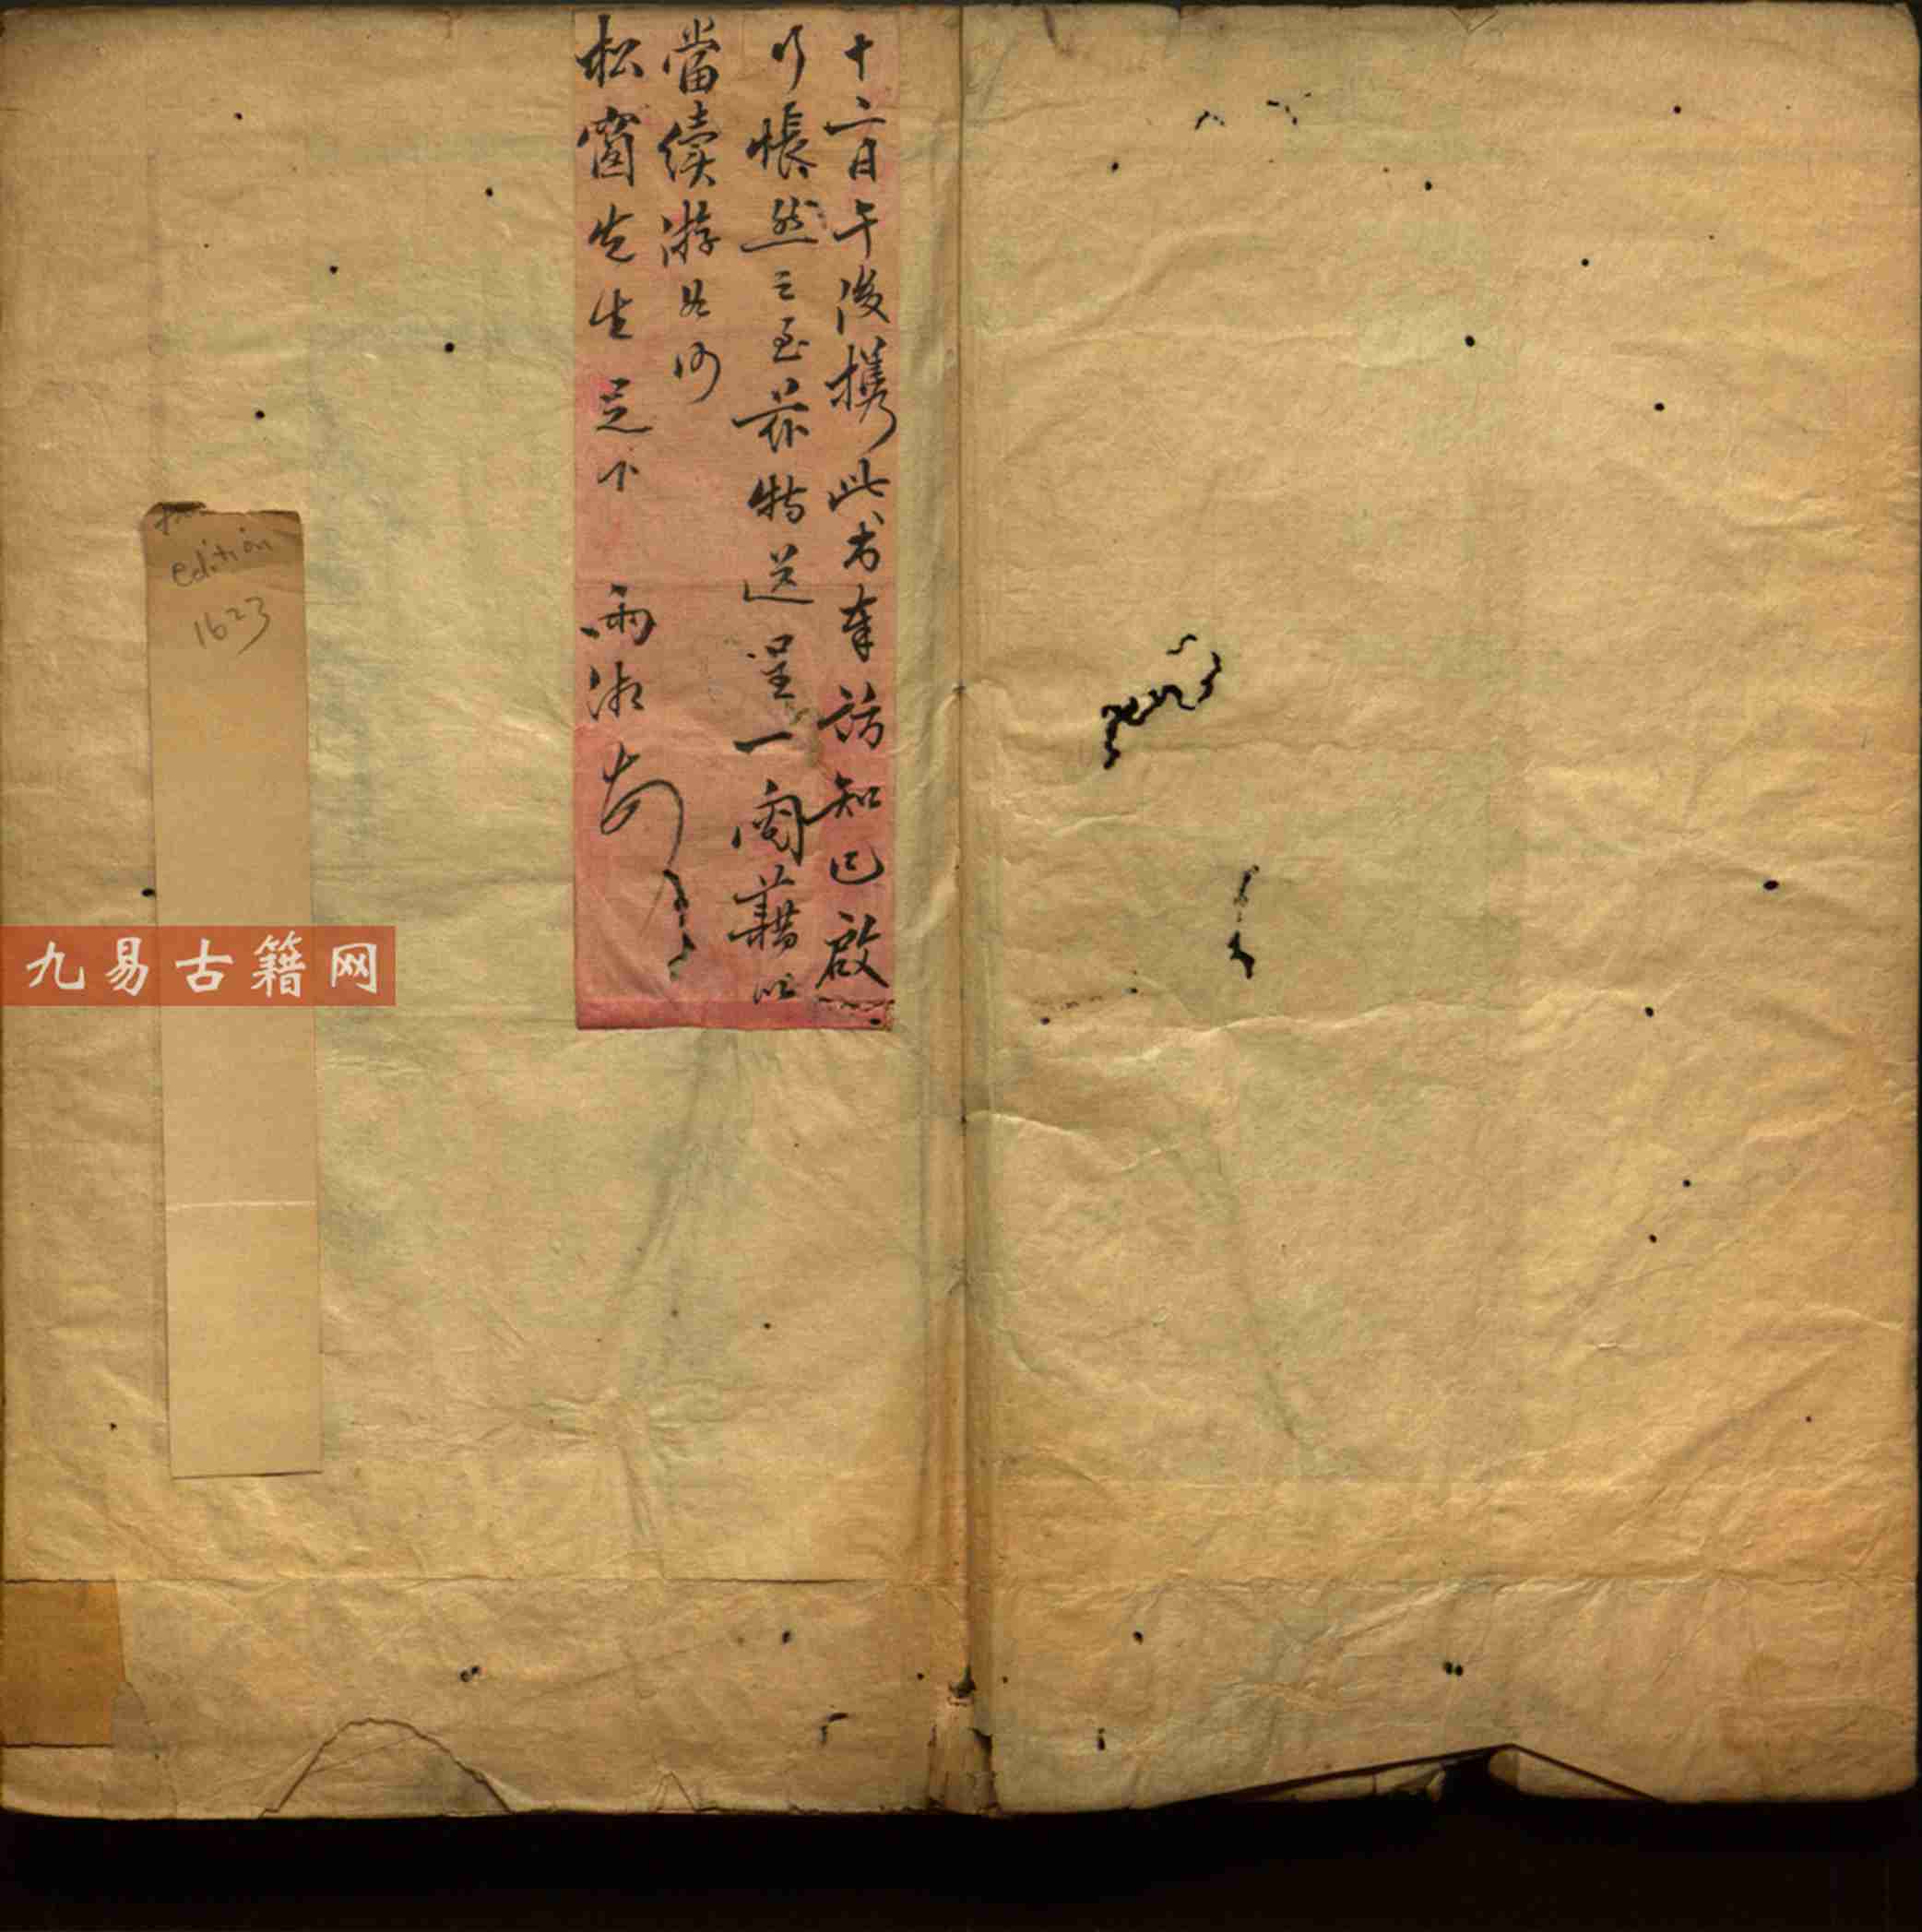 十二日午後携此书奉訪知已啟
行悵然之至茲特送呈一閱藉以
當續游如何
松窗先生足下 雨湘
edition
1623
九易古籍网